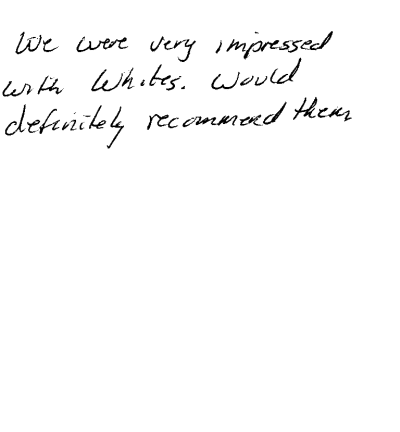 We were very impressed
with Whites. Would
definitely recommend them